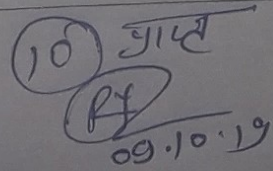 10 प्राप्त
09.10.19